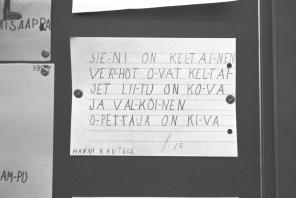 MTSAAPPA
SIE-NI ON KEL-TAI-NEN
VER-HOT O-VAT KEL-TAI-
SET LII-TU ON KO-VA
JA VAL-KOI-NEN
O-PET-TAJA ON KI-VA
1/10
HANNI KANTELE
AM-PU